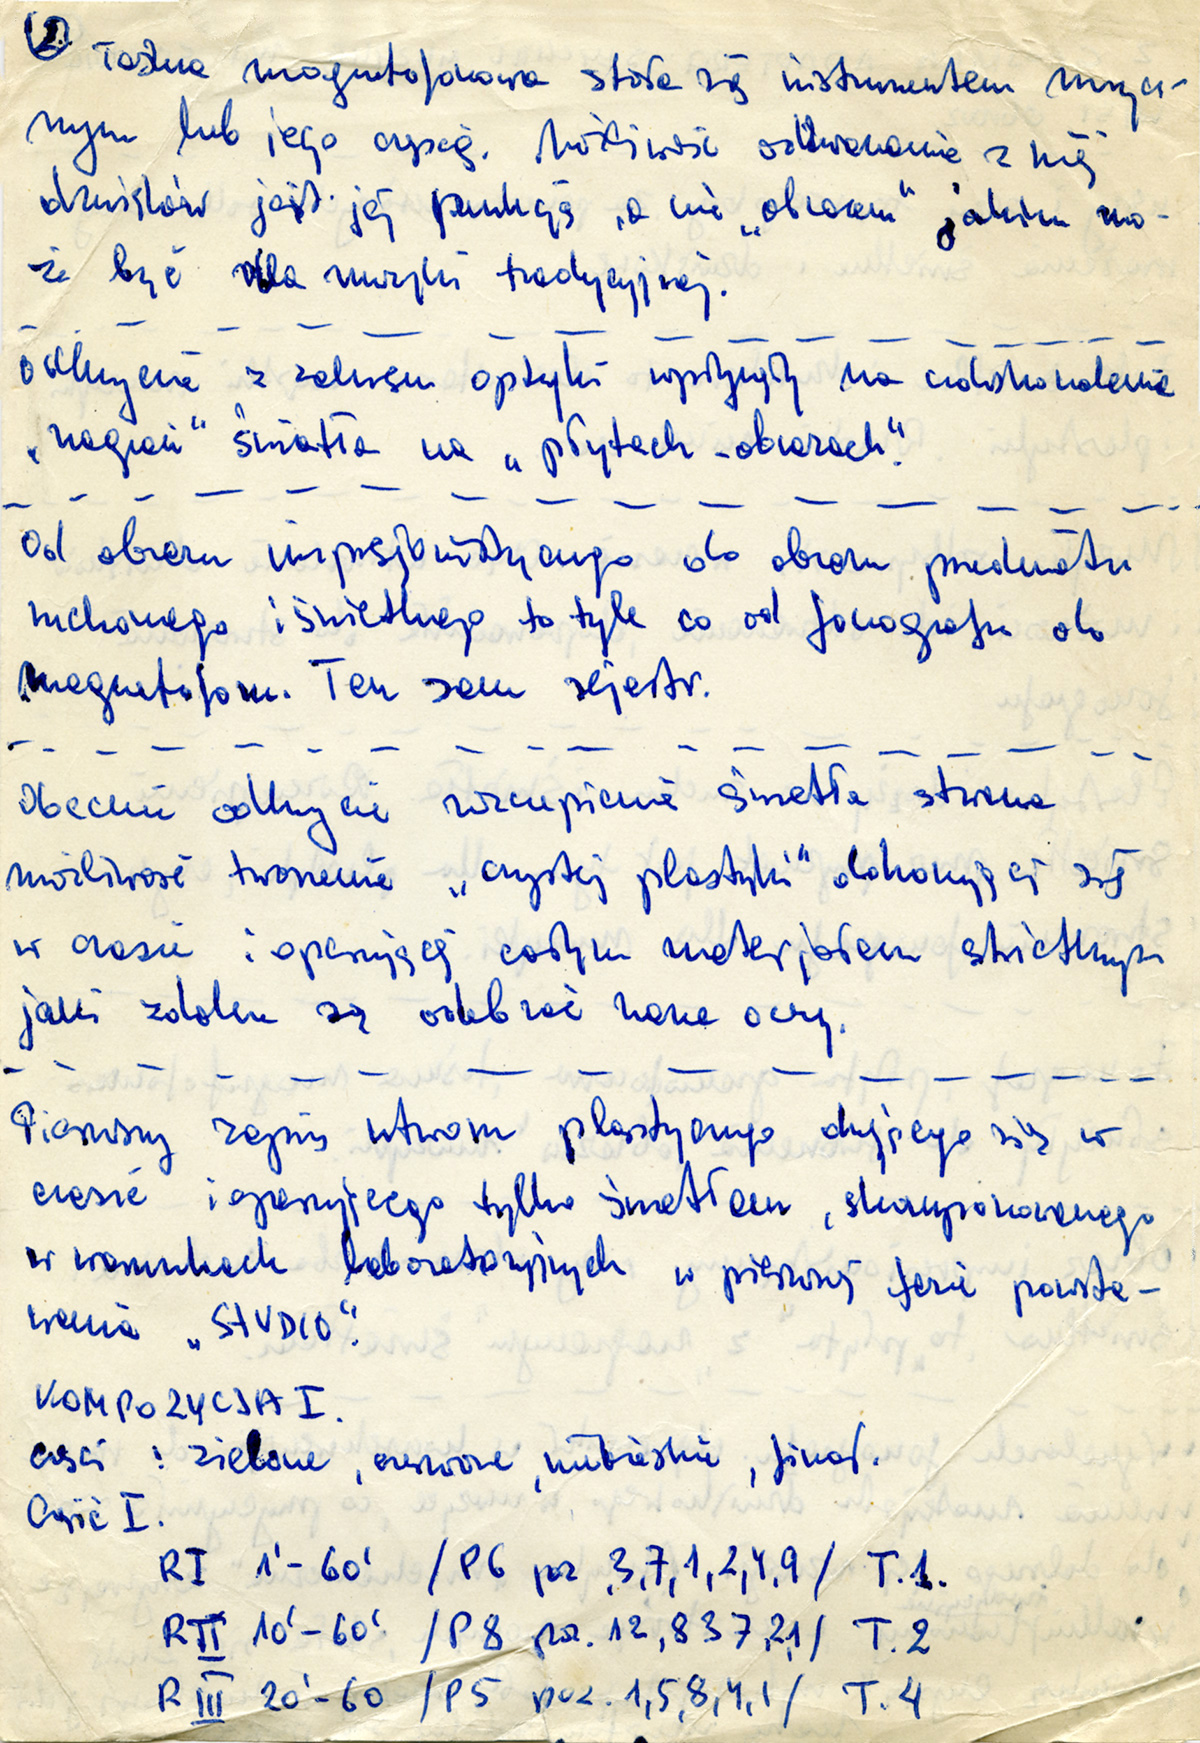 2.
Taśma magnetofonowa stała się instrumentem muzycz-
nym lub jego częścią. Możliwość odtwarzania z niej
dźwięków jest jej funkcją, a nie „obrazem" jakim mo-
że być dla muzyki tradycyjnej.
Odkrycia z zakresu optyki wpłynęły na udoskonalenie
„nagrań" światła na „płytach-obrazach".
Od obrazu impresjonistycznego do obrazu przedmiotu
ruchomego i świetlnego to tyle co od fonografu do
magnetofonu. Ten sam rejestr.
Obecnie odkrycie rozszczepienia światła stwarza
możliwość tworzenia „czystej plastyki" dokonującej się
w czasie i operującej całym materjałem świetlnym
jaki zdolne są odebrać nasze oczy.
Pierwszy zapis utworu plastycznego dziejącego się w
czasie i operującego tylko światłem, skomponowanego
w warunkach laboratoryjnych w pierwszej fazie powsta-
wania „STUDIO".
KOMPOZYCJA I.
części : zielone, czerwone, niebieskie, finał.
Część I.
RI 1'-60' /P6 poz. 3,7,1,2,4,9/ T.1.
RII 10'-60' /P8 poz. 12,8 3 7,2,1/ T.2
RIII 20'-60 /P5 poz. 1,5,8,4,1/ T.4